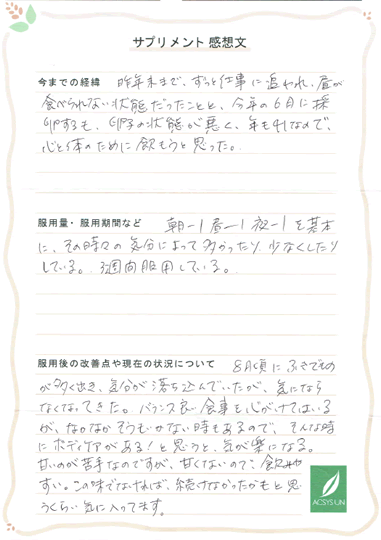 サプリメント 感想文
今までの経緯 昨年末まで、ずっと仕事に追われ、昼が
食べられない状態だったことと、今年の6月に採
卵するも、卵子の状態が悪く、年も41なので、
心と体のために飲もうと思った。
服用量・服用期間など 朝ー1 昼ー1 夜ー1 を基本
に、その時々の気分によって多かったり、少なくしたり
している。3週間服用している。
服用後の改善点や現在の状況について 8月頃にふきでもの
が多く出き、気分が落ち込んでいたが、気になら
なくなってきた。バランス良い食事を心がけてはいる
が、なかなかそうもいかない時もあるので、そんな時
にボディケアがある!と思うと、気が楽になる。
甘いのが苦手なのですが、甘くないので飲みや
すい。この味でなければ、続けなかったかもと思
うくらい気に入ってます。
ACSYSUN